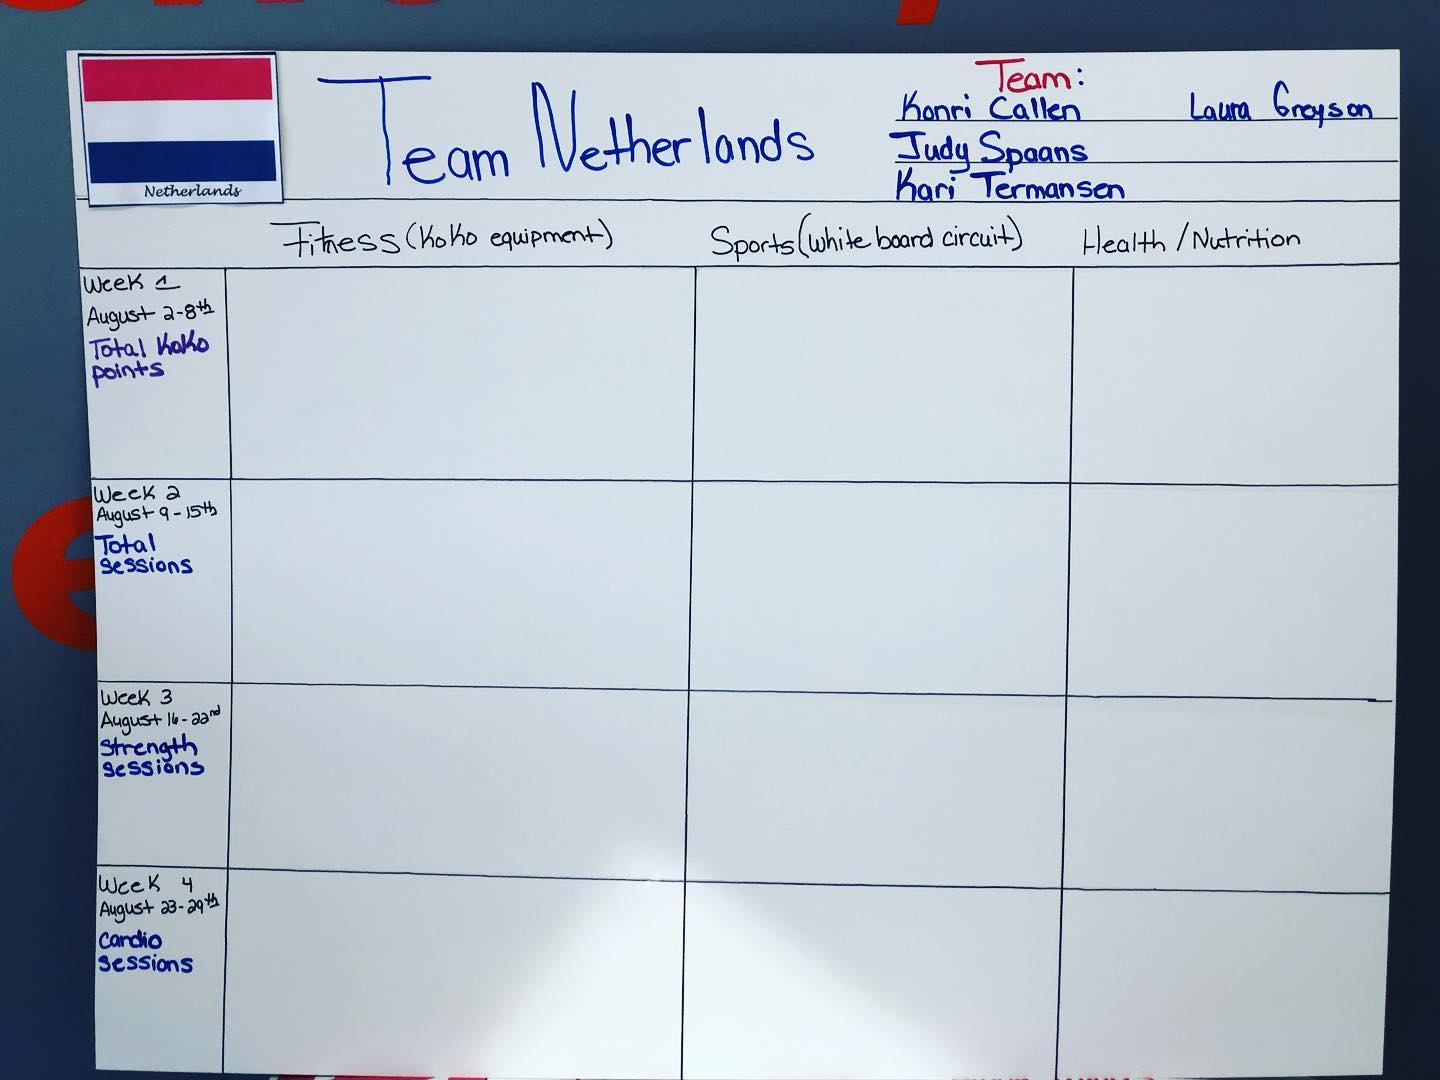 Netherlands
Team Netherlands
Team:
Konri Callen Laura Greyson
Judy Spaans
Kari Termansen
Fitness (KoKo equipment) Sports (white board circuit) Health / Nutrition
Week 1
August 2-8th
Total KoKo
points
Week 2
August 9-15th
Total
sessions
Week 3
August 16-22nd
Strength
sessions
Week 4
August 23-29th
Cardio
sessions